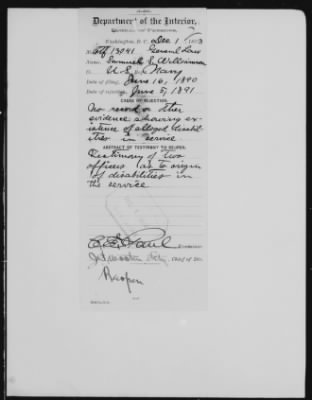 Department of the Interior,
BUREAU OF PENSIONS,
Washington, D. C., Dec 1, 1893
No. Ctf 13041 General Law
Name, Samuel E.
U.S. Navy
Date of filing, June 16, 1890
Date of rejection, June 5, 1891
CAUSE OF REJECTION.
No record or other
evidence showing ex-
istence of alleged disabil-
ities in service
ABSTRACT OF TESTIMONY TO REOPEN.
Testimony of two
officers as to origin
of disabilities in
the service
Paul Examiner.
Chief of Div.
Reopen